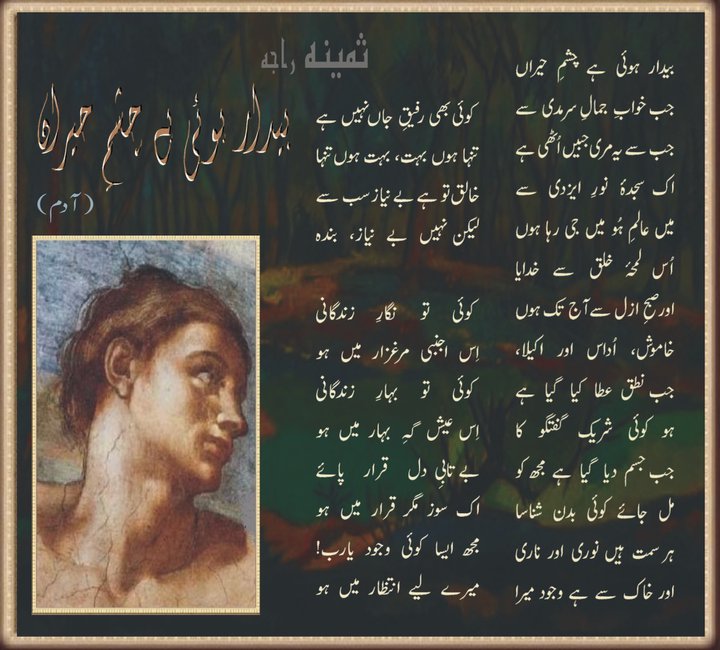 ثمینہ راجہ
بیدار ہوئی ہے چشمِ حیراں
(آدم)
بیدار ہوئی ہے چشمِ حیراں
جب خوابِ جمالِ سرمدی سے
جب سے یہ مری جبیں اُٹھی ہے
اک سجدۂ نورِ ایزدی سے
میں عالمِ ہُو میں جی رہا ہوں
اُس لمحۂ خلق سے خدایا
اور صبحِ ازل سے آج تک ہوں
خاموش، اُداس اور اکیلا،
جب نطق عطا کیا گیا ہے
ہو کوئی شریک گفتگو کا
جب جسم دیا گیا ہے مجھ کو
مل جائے کوئی بدن شناسا
ہر سمت ہیں نوری اور ناری
اور خاک سے ہے وجود میرا
کوئی بھی رفیقِ جاں نہیں ہے
تنہا ہوں بہت، بہت ہوں تنہا
خالق تو ہے بے نیاز سب سے
لیکن نہیں بے نیاز، بندہ
کوئی تو نگارِ زندگانی
اِس اجنبی مرغزار میں ہو
کوئی تو بہارِ زندگانی
اِس عیش گہِ بہار میں ہو
بے تابیِ دل قرار پائے
اک سوز مگر قرار میں ہو
مجھ ایسا کوئی وجود یارب!
میرے لیے انتظار میں ہو